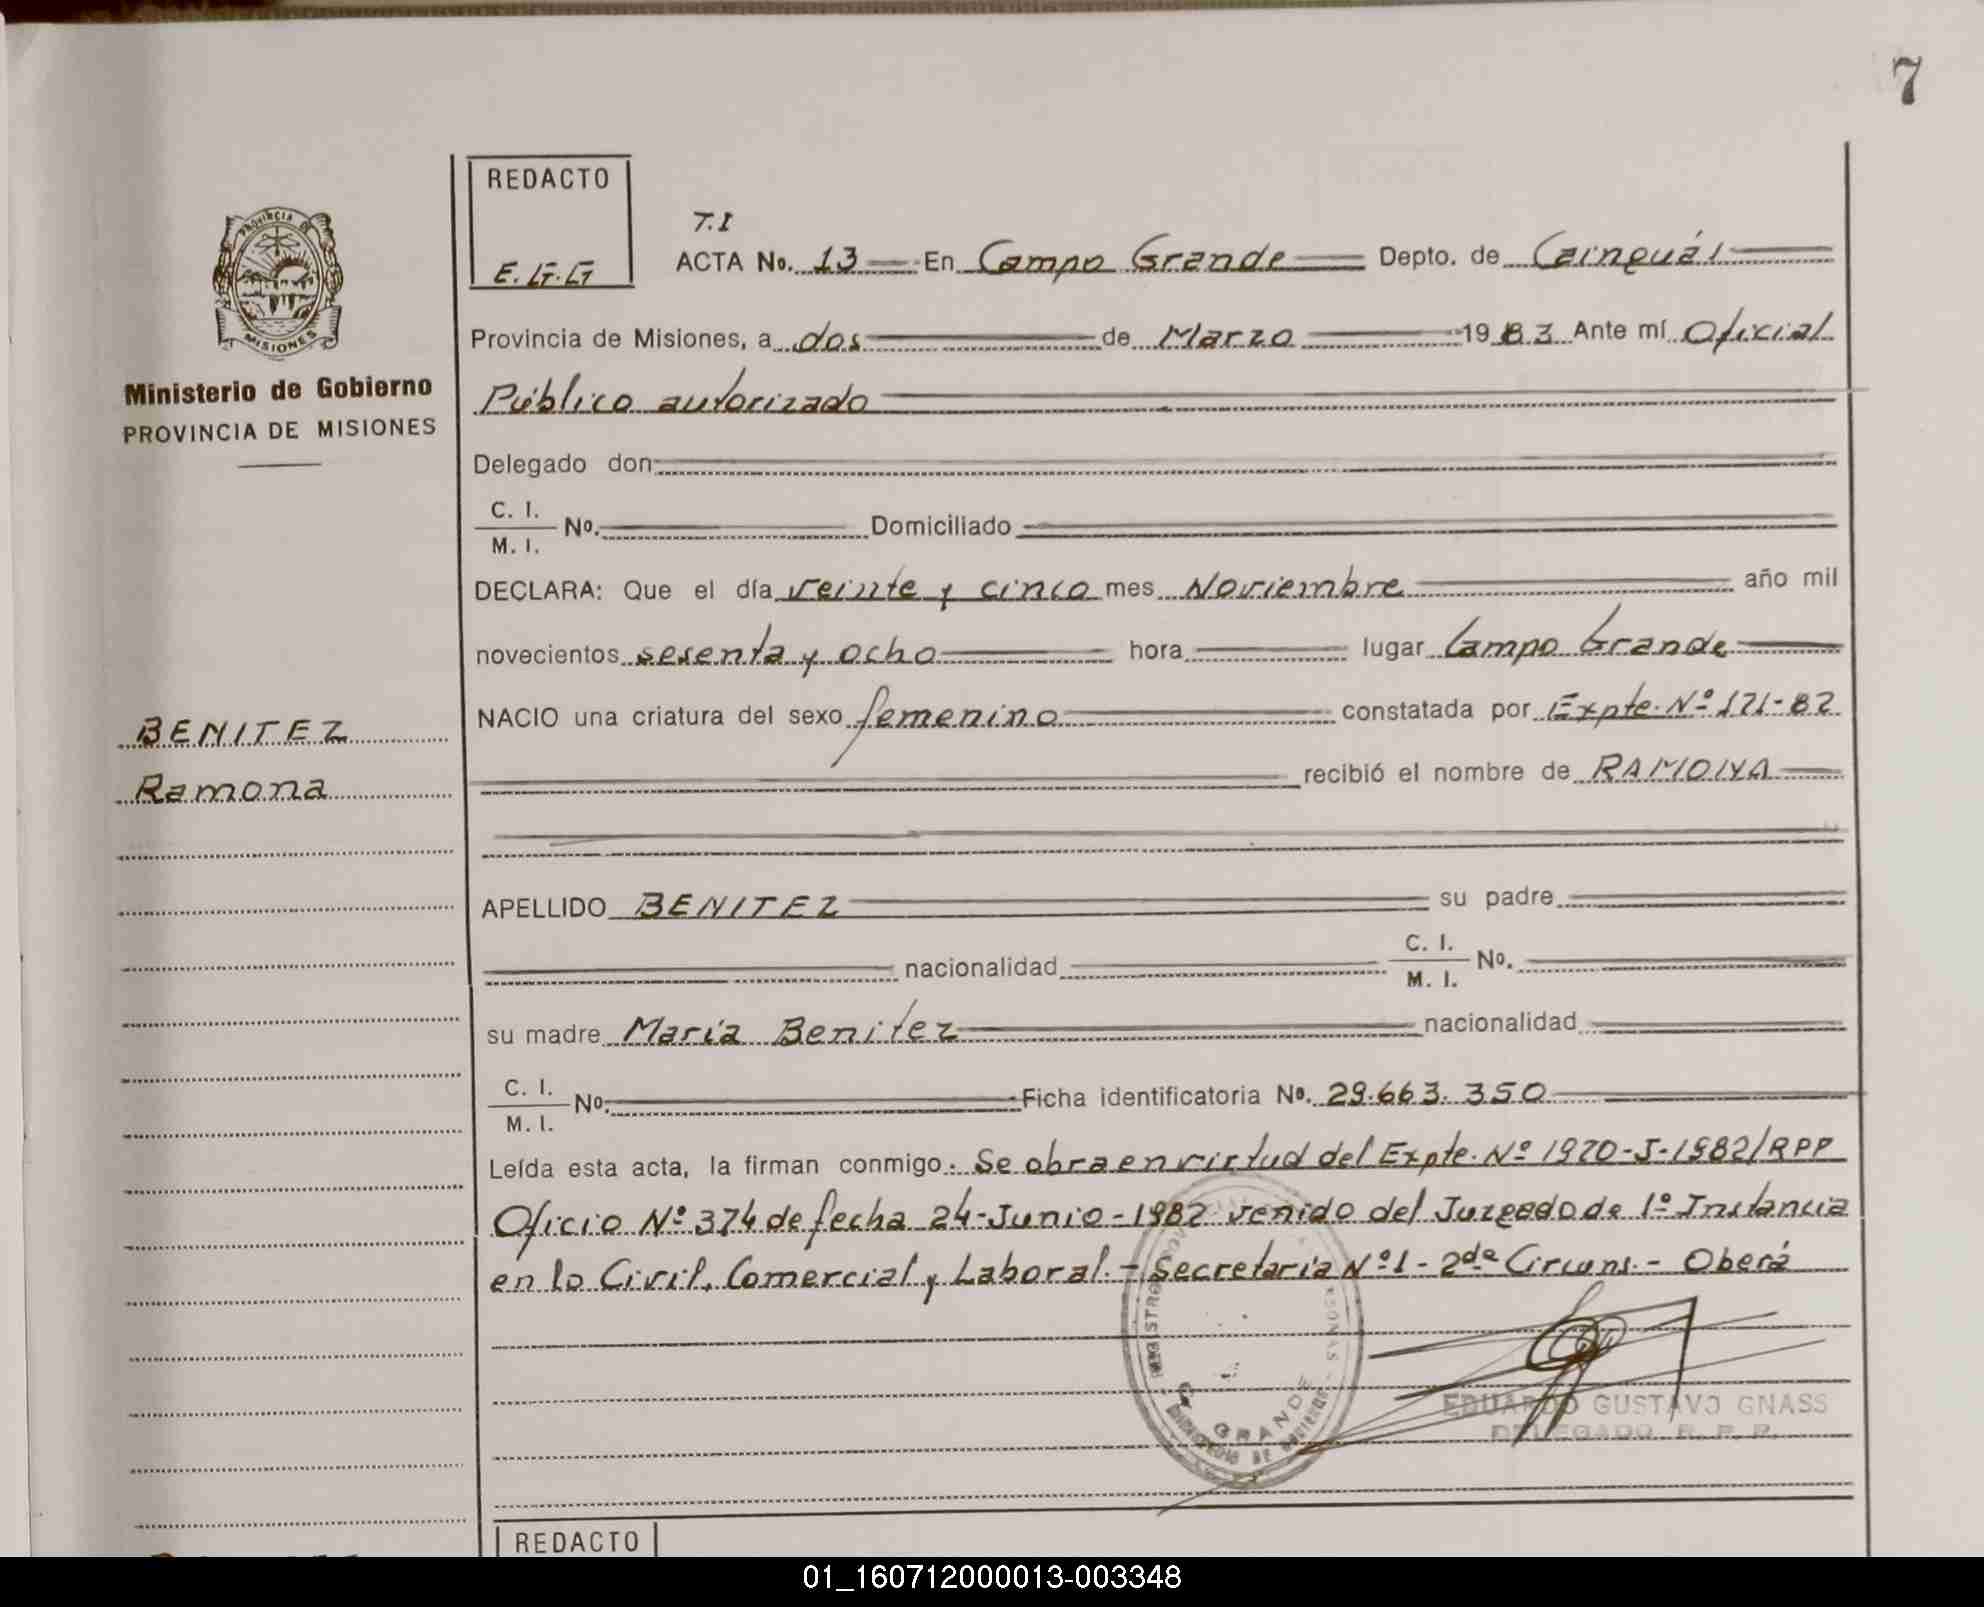 7
REDACTO
E.G.G
PROVINCIA DE
MISIONES
Ministerio de Gobierno
PROVINCIA DE MISIONES
T.I
ACTA No. 13 En Campo Grande Depto. de Cainguás
Provincia de Misiones, a dos de Marzo 1983 Ante mí Oficial
Público autorizado
Delegado don
C. I.
M. I. No. Domiciliado
DECLARA: Que el día veinte y cinco mes Noviembre año mil
novecientos sesenta y ocho hora lugar Campo Grande
NACIO una criatura del sexo femenino constatada por Expte. Nº 121-82
BENITEZ
Ramona
recibió el nombre de RAMONA
APELLIDO BENITEZ su padre
nacionalidad C. I.
M. I. No.
su madre María Benitez nacionalidad
C. I.
M. I. No. Ficha identificatoria No. 29.663.350
Leída esta acta, la firman conmigo. Se obra en virtud del Expte. Nº 1920-J-1982/RPP
Oficio Nº 374 de fecha 24-Junio-1982 venido del Juzgado de 1º Instancia
en lo Civil, Comercial y Laboral.- Secretaria Nº1 - 2da Circuns.- Oberá
GRANDE
EDUARDO GUSTAVO GNASS
DELEGADO R. P. P.
REDACTO
01_160712000013-003348